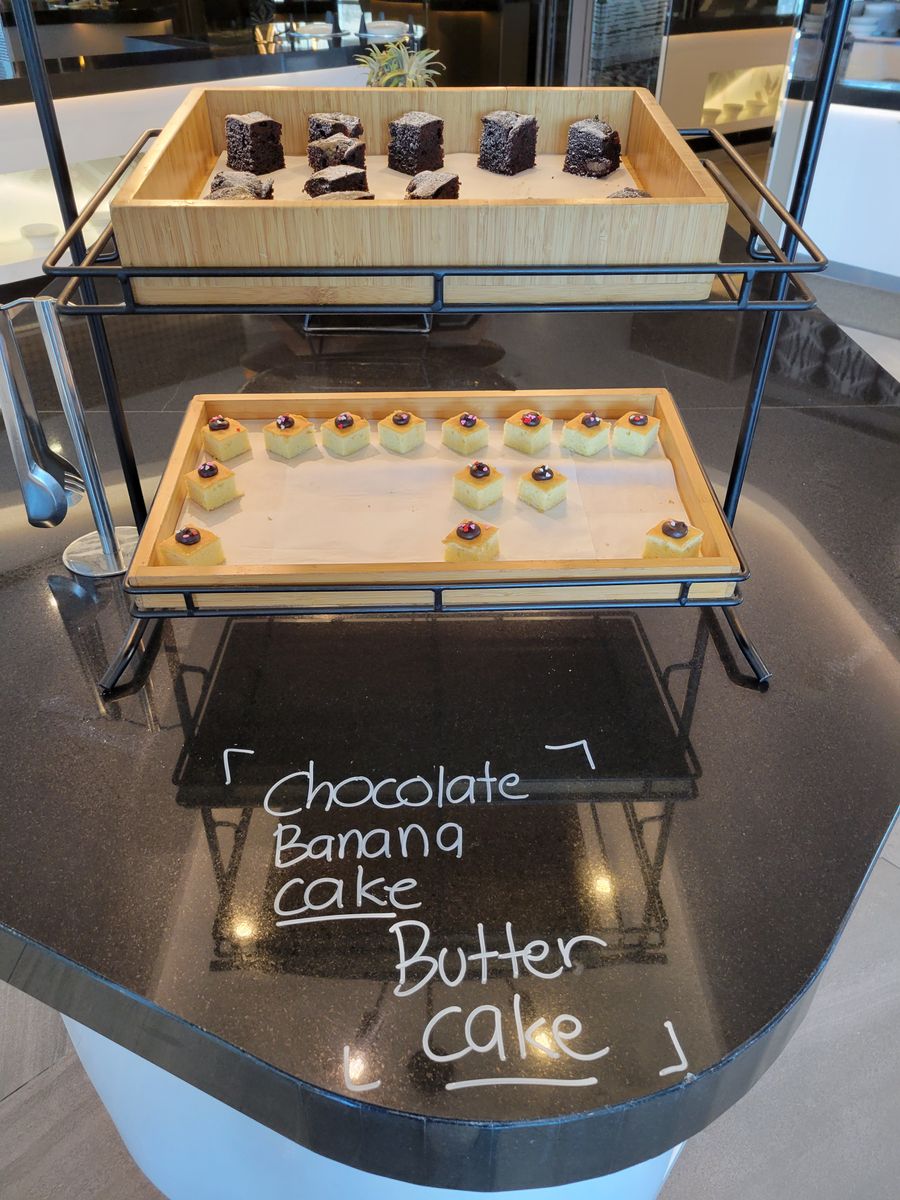 Chocolate
Banana
cake
Butter
cake